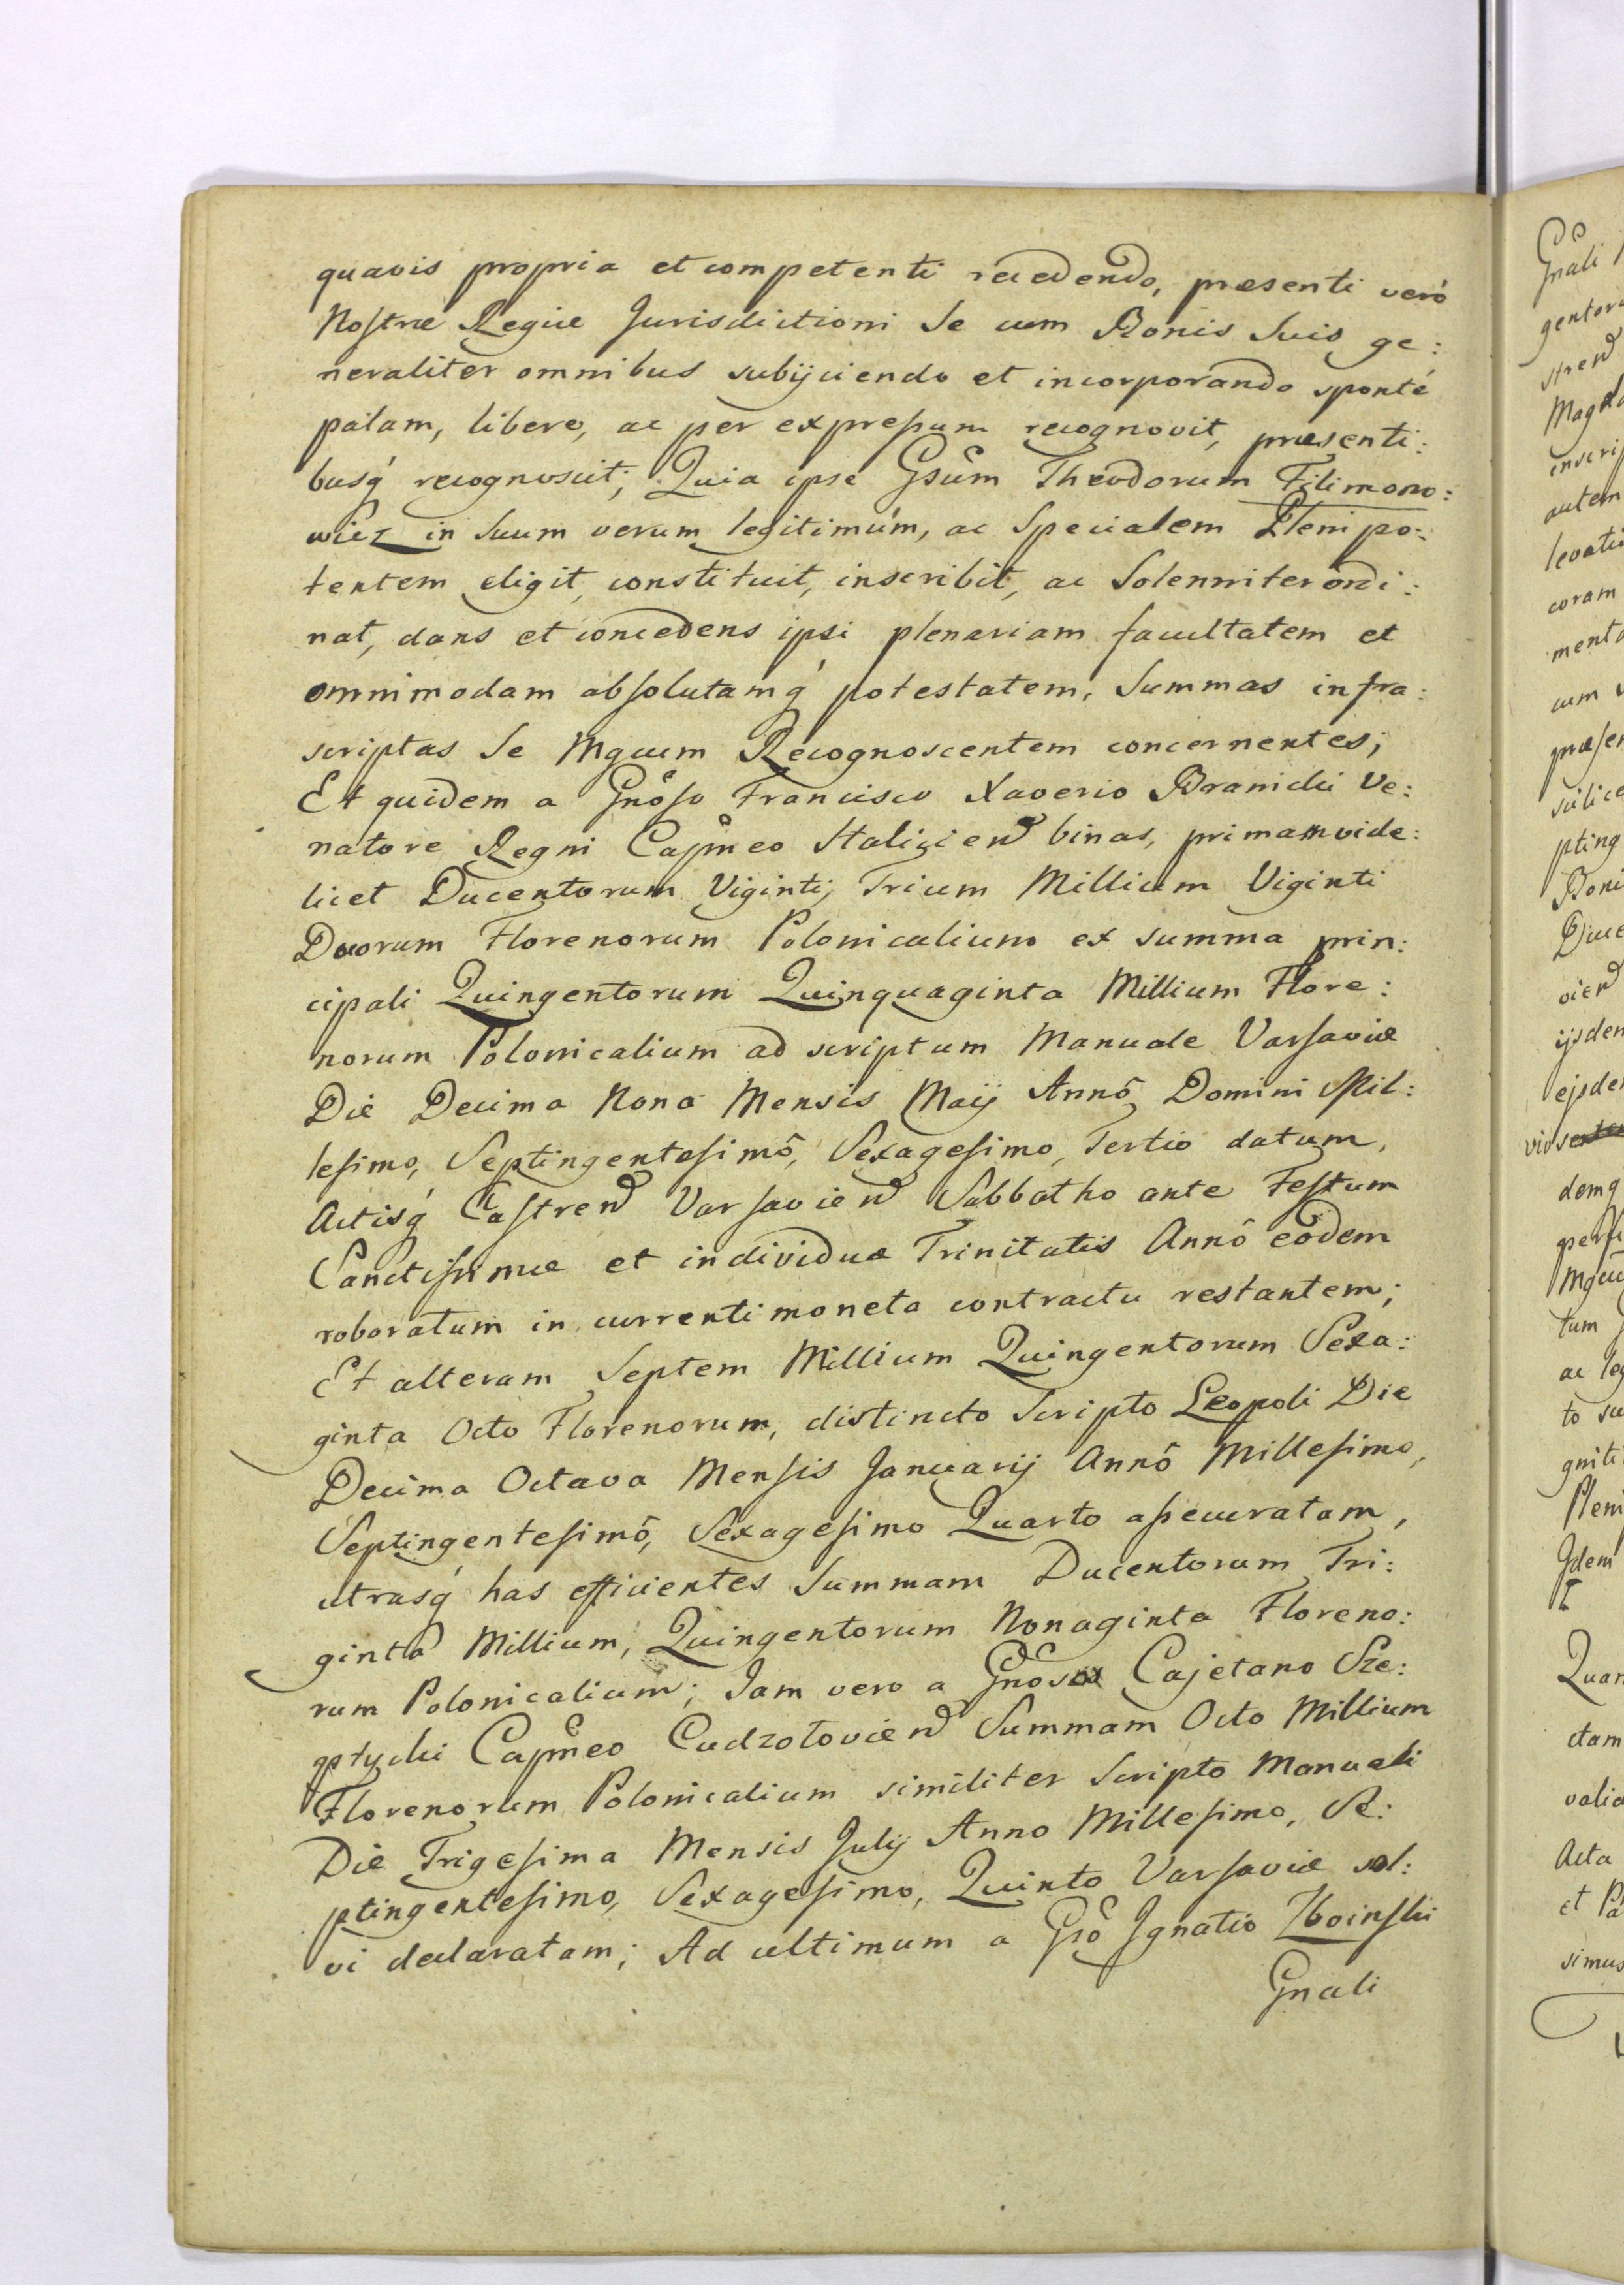 quavis propria et competenti recedendo, præsenti verò
Nostræ Regiæ Jurisdictioni Se cum Bonis Suis ge:
neraliter omnibus subijciendo et incorporando spontè
palam, libere, ac per expressum recognovit, præsenti:
busq́ recognoscit; Quia ipse Gsūm Theodorum Filimono:
wicz in Suum verum legitimúm, ac Specialem Plenipo:
tentem eligit, constituit, inscribit, ac Solenniter ordi:
nat, dans et concedens ipsi plenariam facultatem et
omnimodam absolutamq́ potestatem, Summas infra:
scriptas Se Mgcum Recognoscentem concernentes;
Et quidem a Gnōso Francisco Xaverio Branicki Ve:
natore Regni Capneo Halicien binas, primam vide:
licet Ducentorum Viginti, Trium Millium Viginti
Duorum Florenorum Polonicalium ex summa prin:
cipali Quingentorum Quinquaginta Millium Flore:
norum Polonicalium ad scriptum Manuale Varsaviæ
Die Decima Nona Mensis Maij Annô Domini Mil:
lesimo, Septingentesimô, Sexagesimo, Tertio datum,
Actisq́ Castren Varsavien Sabbatho ante Festum
Sanctissimæ et individuæ Trinitatis Annô eôdem
roboratum in currenti moneta contractu restantem;
Et alteram Septem Millium Quingentorum Sexa:
ginta Octo Florenorum, distincto Scripto Leopoli Die
Decima Octava Mensis Januarij Annô Millesimo,
Septingentesimô, Sexagesimo Quarto assecuratam,
utrasq́ has efficientes Summam Ducentorum Tri:
ginta Millium, Quingentorum Nonaginta Floreno:
rum Polonicalium; Jam vero a Gnōso Cajetano Sze:
ptycki Capneo Cudzotovien Summam Octo Millium
Florenorum Polonicalium similiter Scripto Manuali
Die Trigesima Mensis Julij Anno Millesimo, Se:
ptingentesimo, Sexagesimo, Quinto Varsaviæ sol:
vi declaratam; Ad ultimum a Gsō Ignatio Zboinski
Gnali
Gnali
gentoru
stren
Magd
inscrip
autem
levati
coram
menta
cum
præse
scilice
pting
Boni
Duce
vien
ijsdem
ejsde
demq
Mgcu
tum
ac leg
to su
Pleni
Idem
Quan
ctam
valid
Acta
et
simus